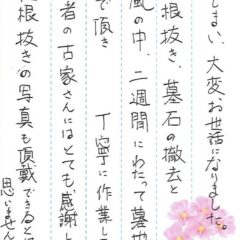 しまい、大変お世話になりました。
根抜き、墓石の撤去と
風の中、二週間にわたって墓地
で頂き 丁寧に作業して
者の古家さんにはとても感謝し
根抜きの写真も頂載できるとに
思いません